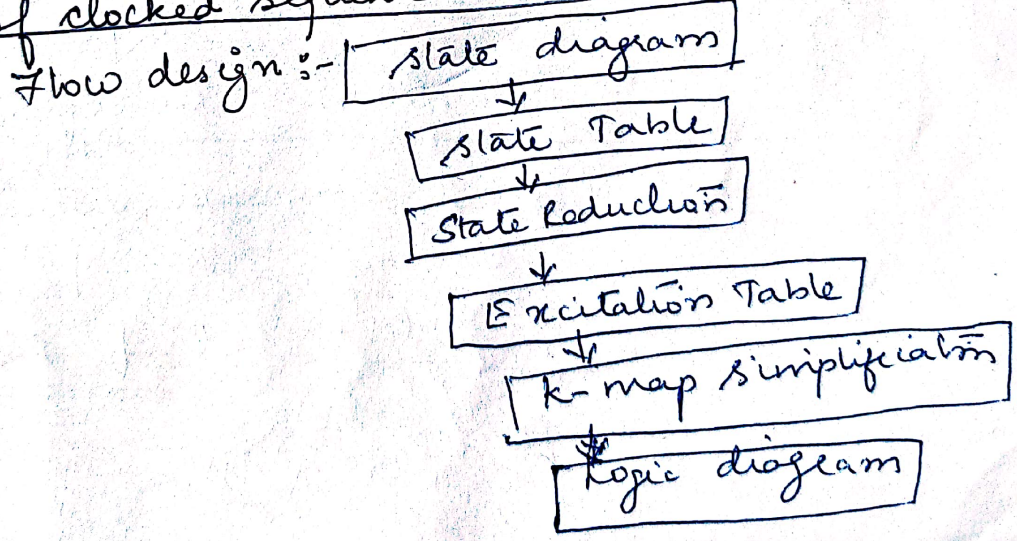 of clocked
Flow design :- State diagram
State Table
State Reduction
Excitation Table
K-map simplification
Logic diagram